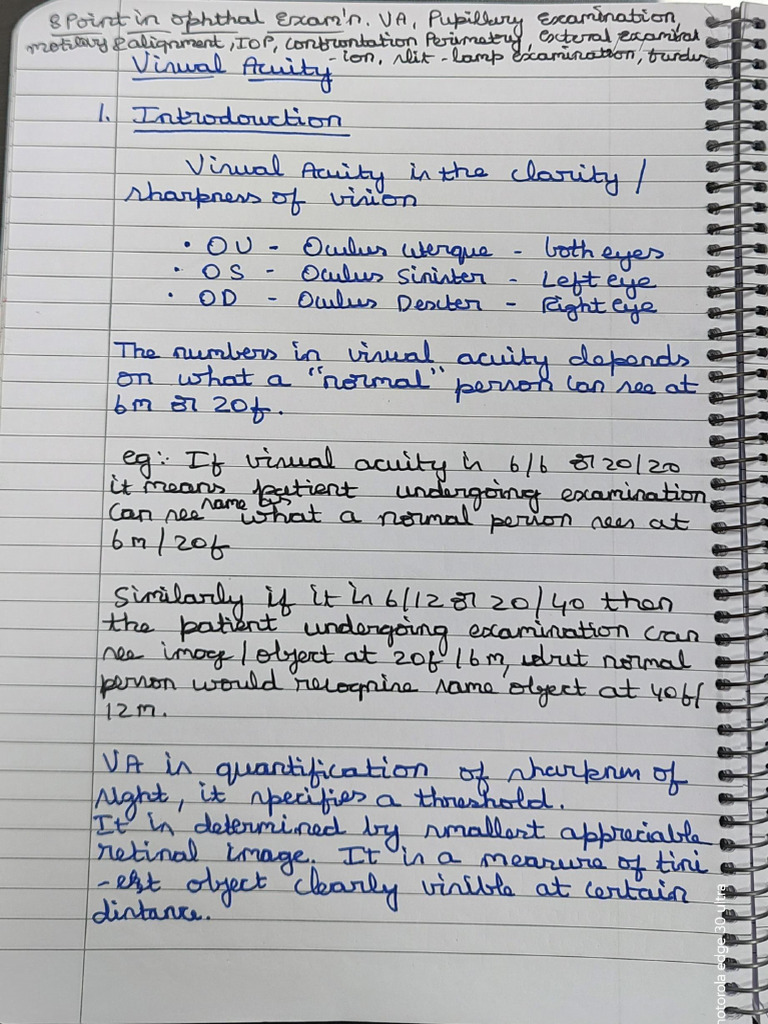 8 Point in ophthal Exam'n. VA, Pupillary Examination,
motility & alignment, IOP, confrontation Perimetry, External examinat
-ion, slit-lamp examination, fundus
Visual Acuity
1. Introdouction
Visual Acuity is the clarity /
sharpness of vision
• OU - Oculus Uterque - both eyes
• OS - Oculus Sinister - Left eye
• OD - Oculus Dexter - Right eye
The numbers in visual acuity depends
on what a "normal" person can see at
6m or 20f.
eg:- If visual acuity is 6/6 or 20/20
it means patient undergoing examination
can see same as what a normal person sees at
6m/20f
Similarly if it is 6/12 or 20/40 then
the patient undergoing examination can
see image/object at 20f/6m, but normal
person would recognise same object at 40f/
12m.
VA is quantification of sharpness of
sight, it specifies a threshold.
It is determined by smallest appreciable
retinal image. It is a measure of tini
-est object clearly visible at certain
distance.
motorola edge 30 ultra